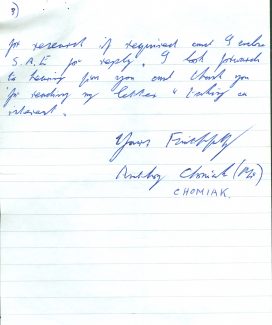 3)
for research if required and I enclose
S.A.E for reply. I look forwards
to hearing from you and thank you
for reading my letter & taking an
interest.
Yours Faithfully
Anthony Chomiak (Mr)
CHOMIAK.